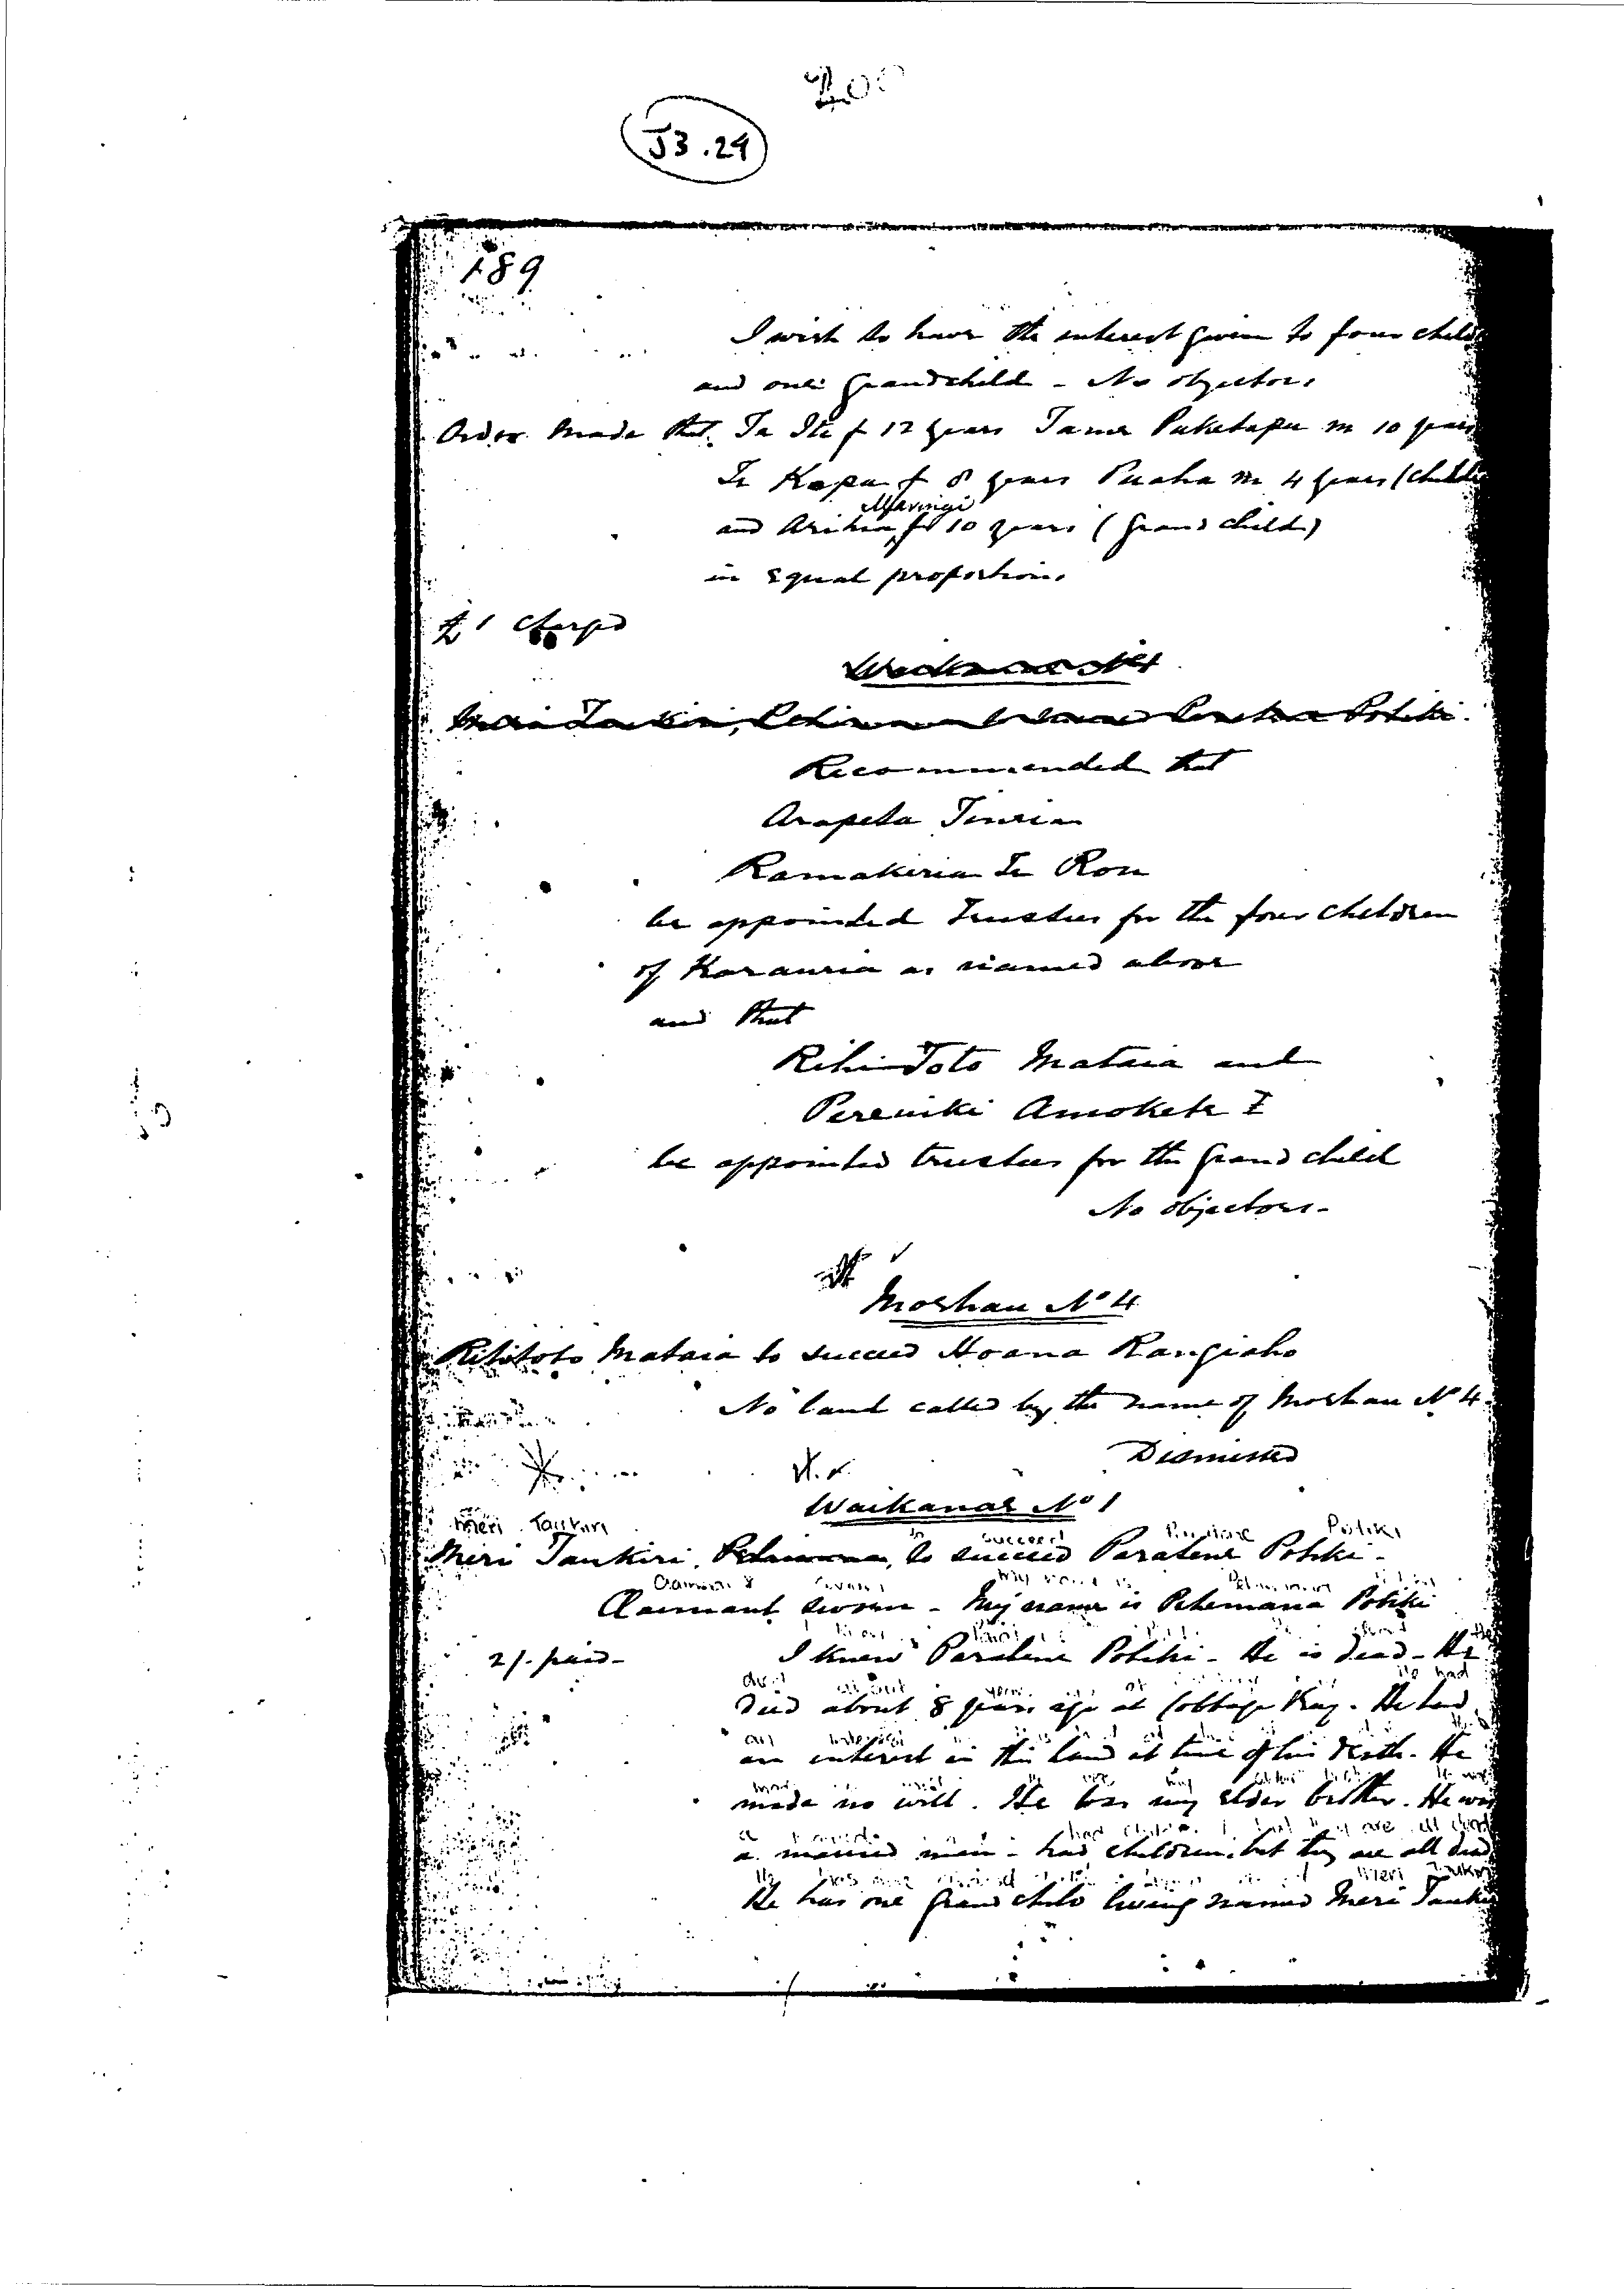 J3.29
189
I wish to have the interest given to four child
and one grandchild - No objectors
Order made that Ta Ite f 12 years Tamer Puketapu m 10 years
Te Kapa f 8 years Puaha m 4 years (childr
Maringi
and Arihia f 10 years (Grand child)
in Equal proportions
£1 charged
Potiki.
Recommended that
Arapeta
Ramakiria Te Rou
be appointed Trustees for the four children
of Karauria as named above
and that
Rihi Toto Mataia and
Pereniki Amokete I
be appointed trustees for the Grand child
No objectors-
Morhau No 4
Rititoto Mataia to succeed Hoana Rangiaho
No land called by the name of Morhau No 4.
Dismissed
Waikanae No 1
Meri Taukiri
succeed
Potiki
Meri Taukiri, to succeed Paratene Potiki -
Claimant sworn - My name is Pehemana Potiki
I knew Paratene Potiki - He is dead - He
2/- paid -
died about 8 years ago at Cobbage Bay. He had
an interest in this land at time of his death. He
made no will. He was my elder brother. He was
a married man - had children, but they are all dead
He has one grand child living named Meri Taukiri